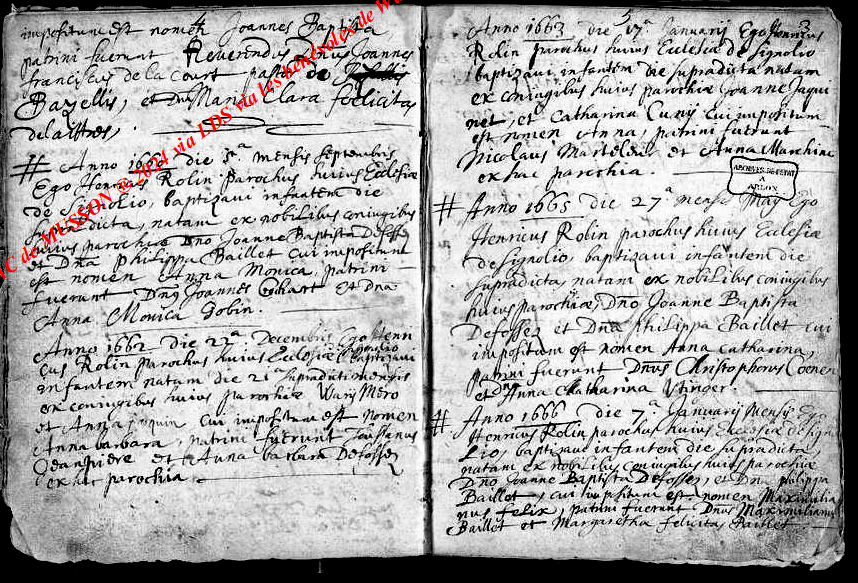 4
impositum est nomen Joannes Baptista
patrini fuerunt Reverendus Dnus Joannes
franciscus de la Court pastor de
Bazellis, et Dna Maria Clara foelicitas
delaittres.
# Anno 1661 die 5.a mensis septembris
Ego Henricus Rolin parochus huius Ecclesiæ
de Signolio, baptizavi infantem die
supradicta, natam ex nobilibus coniugibus
huius parochiæ Dno Joanne Baptista Defossez
et Dna philippa Baillet cui impositum
est nomen Anna Monica, patrini
fuerunt Dnus Joannes et Dna
Anna Monica Gobin.
Anno 1662 die 22.a Decembris Ego Henri
cus Rolin parochus huius Ecclesiæ de Signolio baptizavi
infantem natam die 21.a supradicti mensis
ex coniugibus huius parochiæ
et Anna cui impositum est nomen
Anna barbara, patrini fuerunt
Jeanpiere et Anna barbara Defossez
ex hac parochia.
5
Anno 1663 die 17.a Januarij Ego Henricus
Rolin parochus huius Eclesiæ de Signolio
baptizavi infantem die supradicta natam
ex coniugibus huius parochiæ Joanne Jaqui
net, et Catharina Cunij cui impositum
est nomen Anna, patrini fuerunt
Nicolaus et Anna
ex hac parochia.
ARCHIVES DE L'ETAT
A
ARLON
# Anno 1665 die 27.a mensis Maij Ego
Henricus Rolin parochus huius Eclesiæ
de Signolio, baptizavi infantem die
supradicta, natam ex nobilibus coniugibus
huius parochiæ, Dno Joanne Baptista
Defossez et Dna philippa Baillet cui
impositum est nomen Anna Catharina,
patrini fuerunt Dnus Christophorus Coenen
et Dna Anna Catharina
# Anno 1666 die 7.a Januarij mensis Ego
Henricus Rolin parochus huius Ecclesiæ de Signo
lio, baptizavi infantem die supradicta,
natam ex nobilibus coniugibus huius parochiæ
Dno Joanne Baptista Defossez, et Dna philippa
Baillet, cui impositum est nomen Maximilia
nus felix, patrini fuerunt Dnus Maximilianus
Baillet et Margaretha felicitas Baillet
de MUSSON @ 2014 via LDS via les bénévoles de